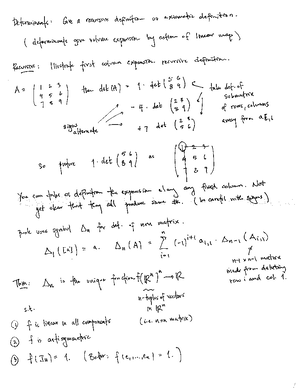 Determinants: Give a recursive definition or axiomatic definition.
( determinants give volume expansion by action of linear map )
Recursive: Illustrate first column expansion recursive definition.
A = ( 1 2 3 4 5 6 7 8 9 ) then det(A) = 1 · det ( 5 6 8 9 ) take det. of
submatrix
of rows, columns
away from
- 4 · det ( 2 3 8 9 )
signs
alternate
+ 7 det ( 2 3 5 6 )
So picture 1 · det ( 5 6 8 9 ) as ( 1 2 3 4 5 6 7 8 9 )
You can take as definition the expansion along any fixed column. Not
yet clear that they all produce same #. ( be careful with signs )
use symbol Δn for det. of n×n matrix.
Δ1 ([a]) = a. Δn (A) = Σ (-1)^{i+1} a_{i,1} · Δ_{n-1} (A_{i,1})
n-1 × n-1 matrix
made from deleting
row i and col 1.
Thm: Δn is the unique function f: (ℝ^n)^n → ℝ
n-tuples of vectors
in ℝ^n
s.t. (i.e. n×n matrix)
① f is linear in all components
② f is antisymmetric
③ f(In) = 1. ( f(e1,...,en) = 1. )